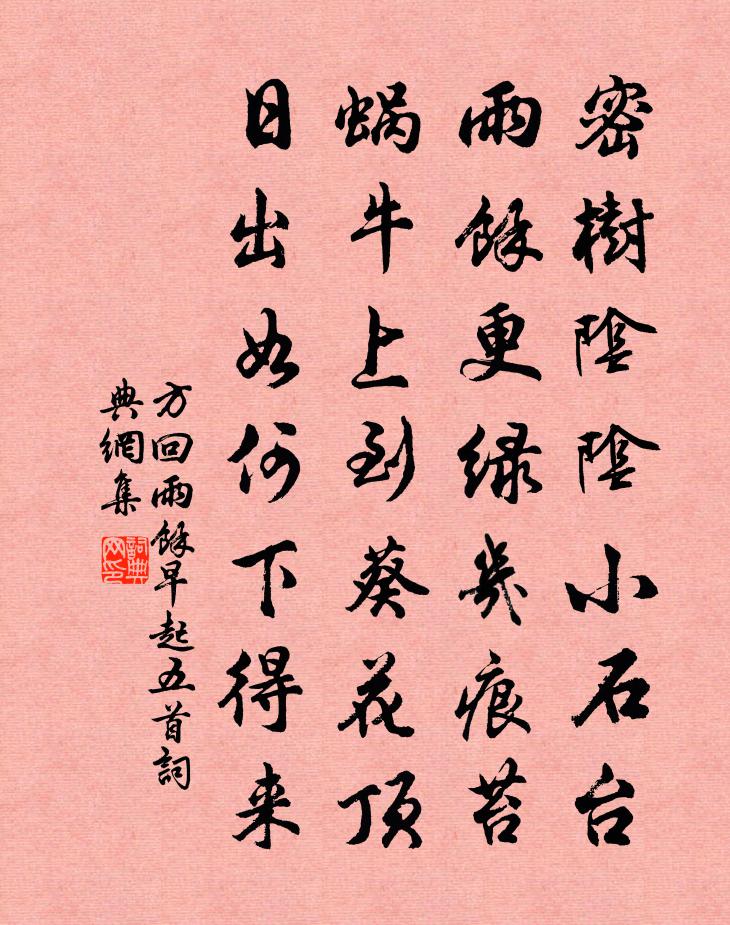 密樹陰陰小石台
雨餘更绿幾痕苔
蝸牛上到葵花頂
日出如何下得来
方回雨餘早起五首詞
典網集
詞典网印